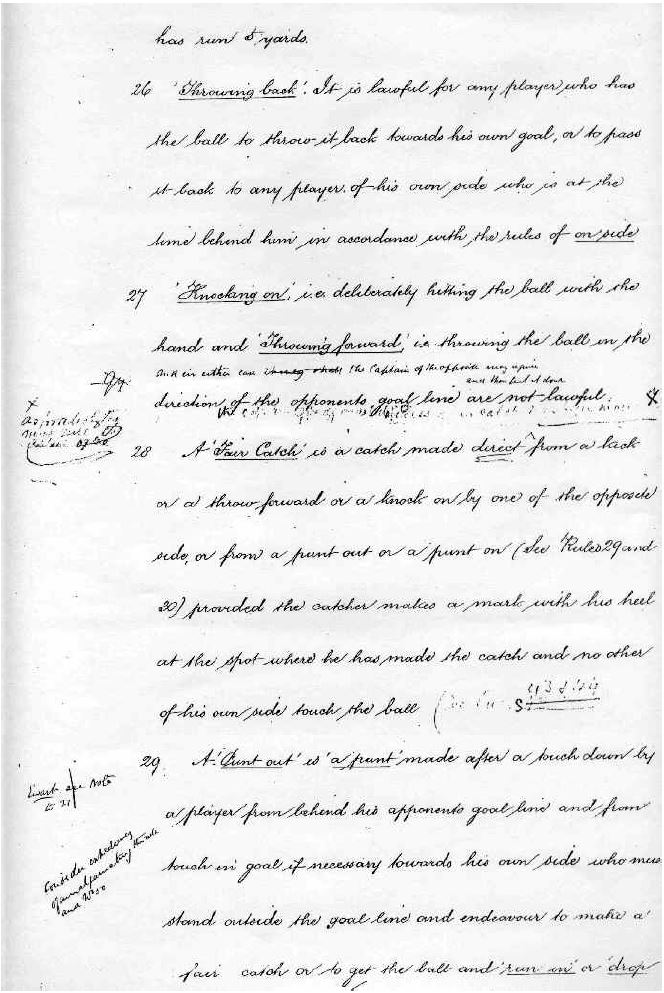 has run 5 yards.
26 'Throwing back'. It is lawful for any player who has
the ball to throw it back towards his own goal, or to pass
it back to any player of his own side who is at the
time behind him in accordance with the rules of on side
27 'Knocking on', i.e. deliberately hitting the ball with the
hand and 'Throwing forward', i.e. throwing the ball in the
and in either case the Captain of the opposite may
and then put it down
direction of the opponents goal line are not lawful. X
X
28 A 'Fair Catch' is a catch made direct from a kick
or a throw forward or a knock on by one of the opposite
side, or from a punt out or a punt on (See Rules 29 and
30) provided the catcher makes a mark with his heel
at the spot where he has made the catch and no other
of his own side touch the ball
29. A 'Punt out' is 'a punt' made after a touch down by
see Note
to 21
a player from behind his opponents goal line and from
touch in goal if necessary towards his own side who mus
Consider
and No 30
stand outside the goal line and endeavour to make a
fair catch or to get the ball and 'run in' or 'drop